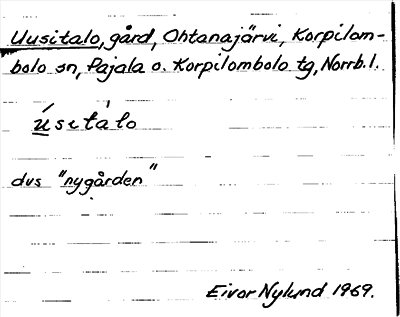 Uusitalo, gård, Ohtanajärvi, Korpilom-
bolo sn, Pajala o. Korpilombolo tg, Norrb. l.
úsitàlo
dvs "nygården"
Eivor Nylund 1969.